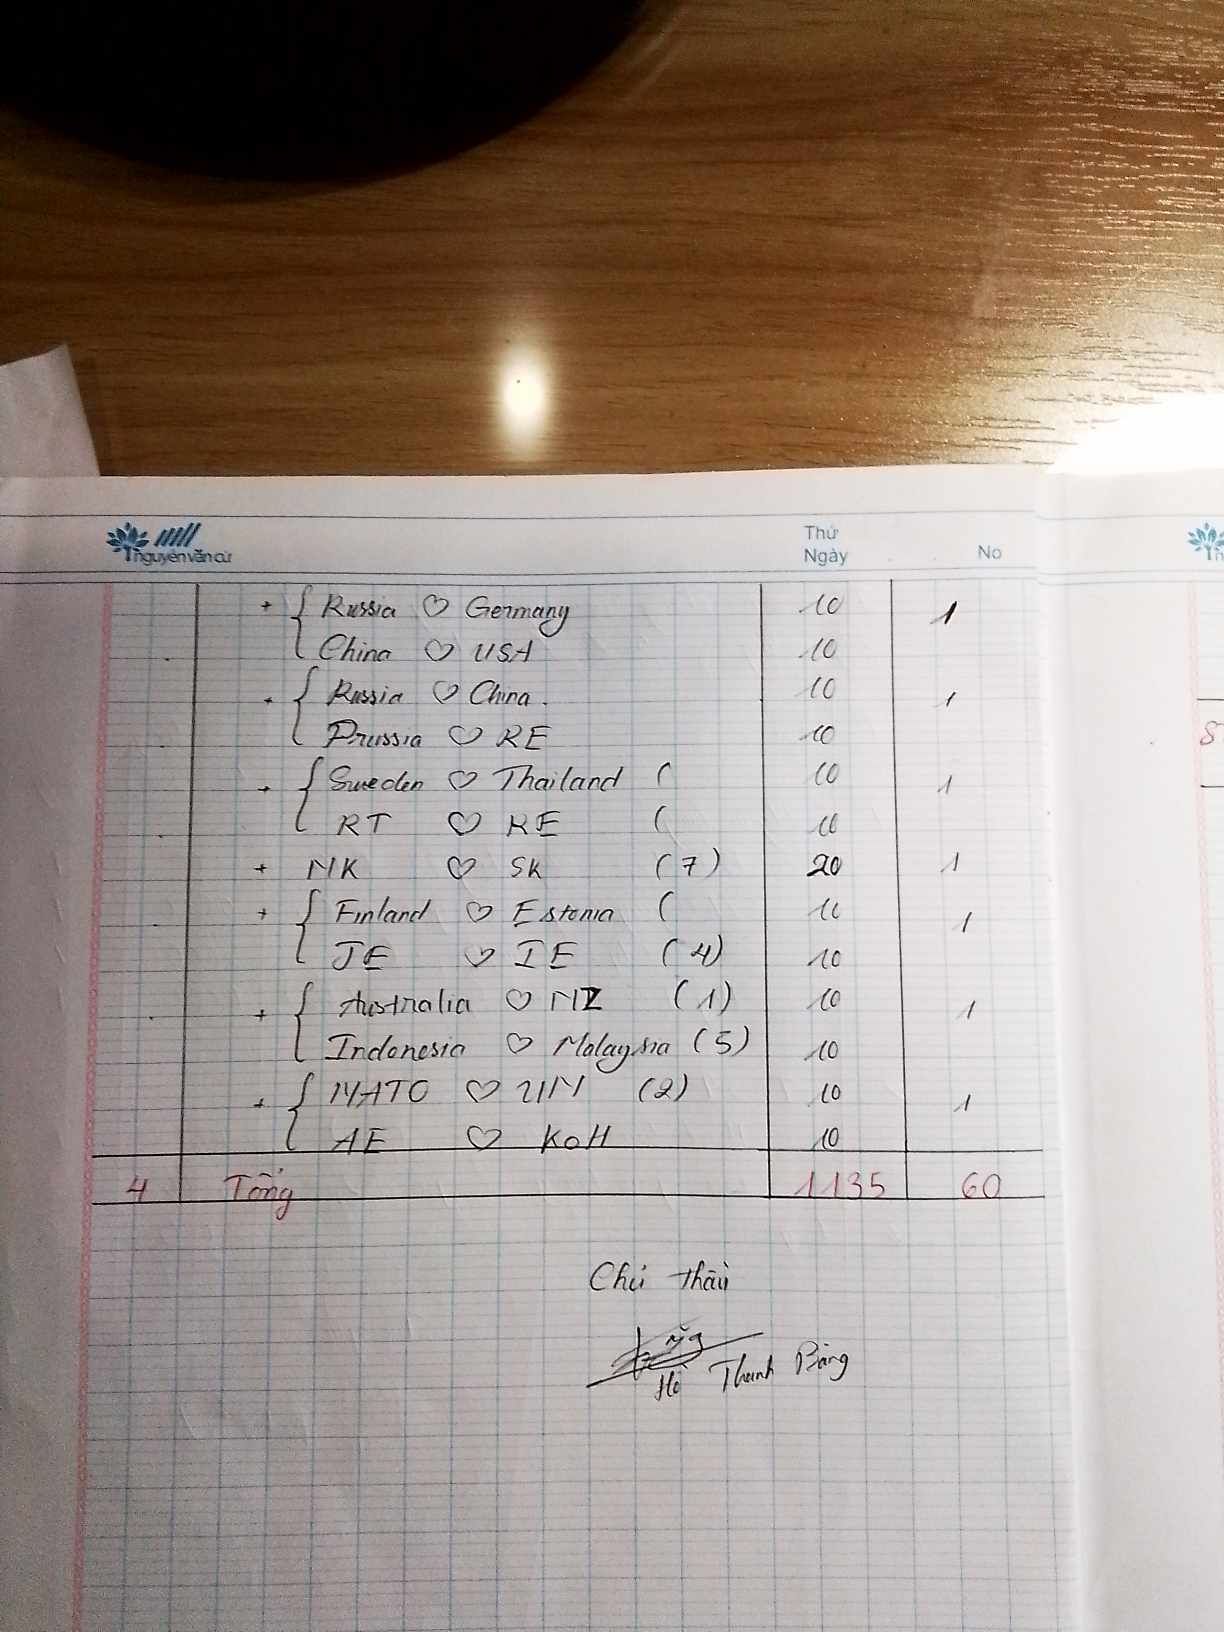 nguyễn văn cừ
Thứ
Ngày
No
+ { Russia ♡ Germany 10 1
China ♡ USA 10
+ { Russia ♡ China. 10 1
Prussia ♡ RE 10
+ { Sweden ♡ Thailand ( 10 1
RT ♡ KE ( 10
+ NK ♡ SK (7) 20 1
+ { Finland ♡ Estonia ( 10 1
JE ♡ IE (4) 10
+ { Australia ♡ NZ (1) 10 1
Indonesia ♡ Malaysia (5) 10
+ { NATO ♡ UN (2) 10 1
AE ♡ KOH 10
4 Tổng 1135 60
Chủ thầu
Hồ Thanh Bằng